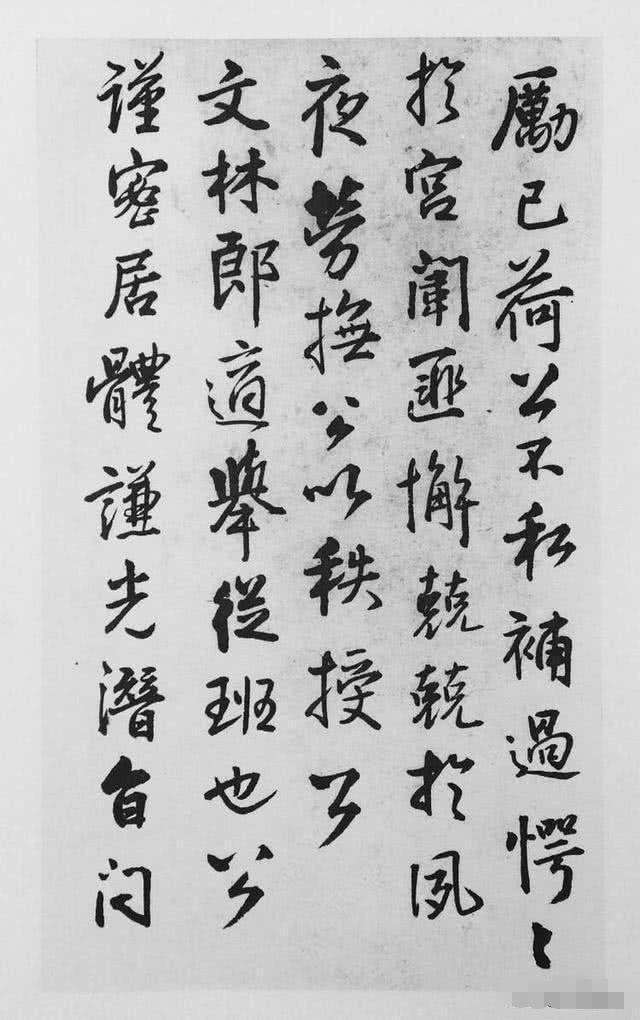 勵己荷公不私補過愕〻
於宮闈匪懈兢兢於夙
夜勞撫公以秩授公
文林郎適舉從班也公
謹密居體謙光潛問